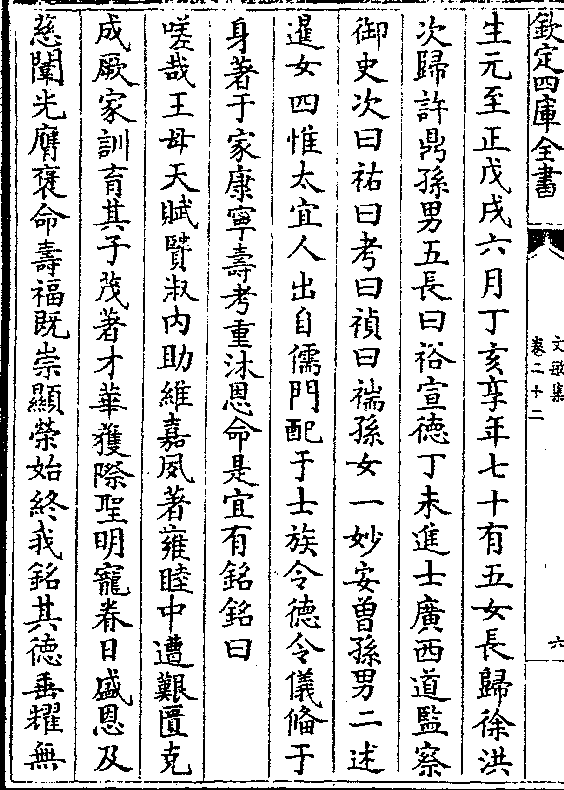 欽定四庫全書
文敏集
卷二十二
六
生元至正戊戌六月丁亥享年七十有五女長歸徐洪
次歸許鼎孫男五長曰裕宣德丁未進士廣西道監察
御史次曰祐曰考曰禎曰褍孫女一妙安曽孫男二述
暹女四惟太宜人出自儒門配于士族令德令儀脩于
身著于家康寧壽考重沐恩命是宜有銘銘曰
嗟哉王母天賦賢淑内助維嘉夙著雍睦中遭艱匱克
成厥家訓育其子茂著才華獲際聖明寵眷日盛恩及
慈闈光膺褒命壽福既崇顯榮始終我銘其德垂耀無